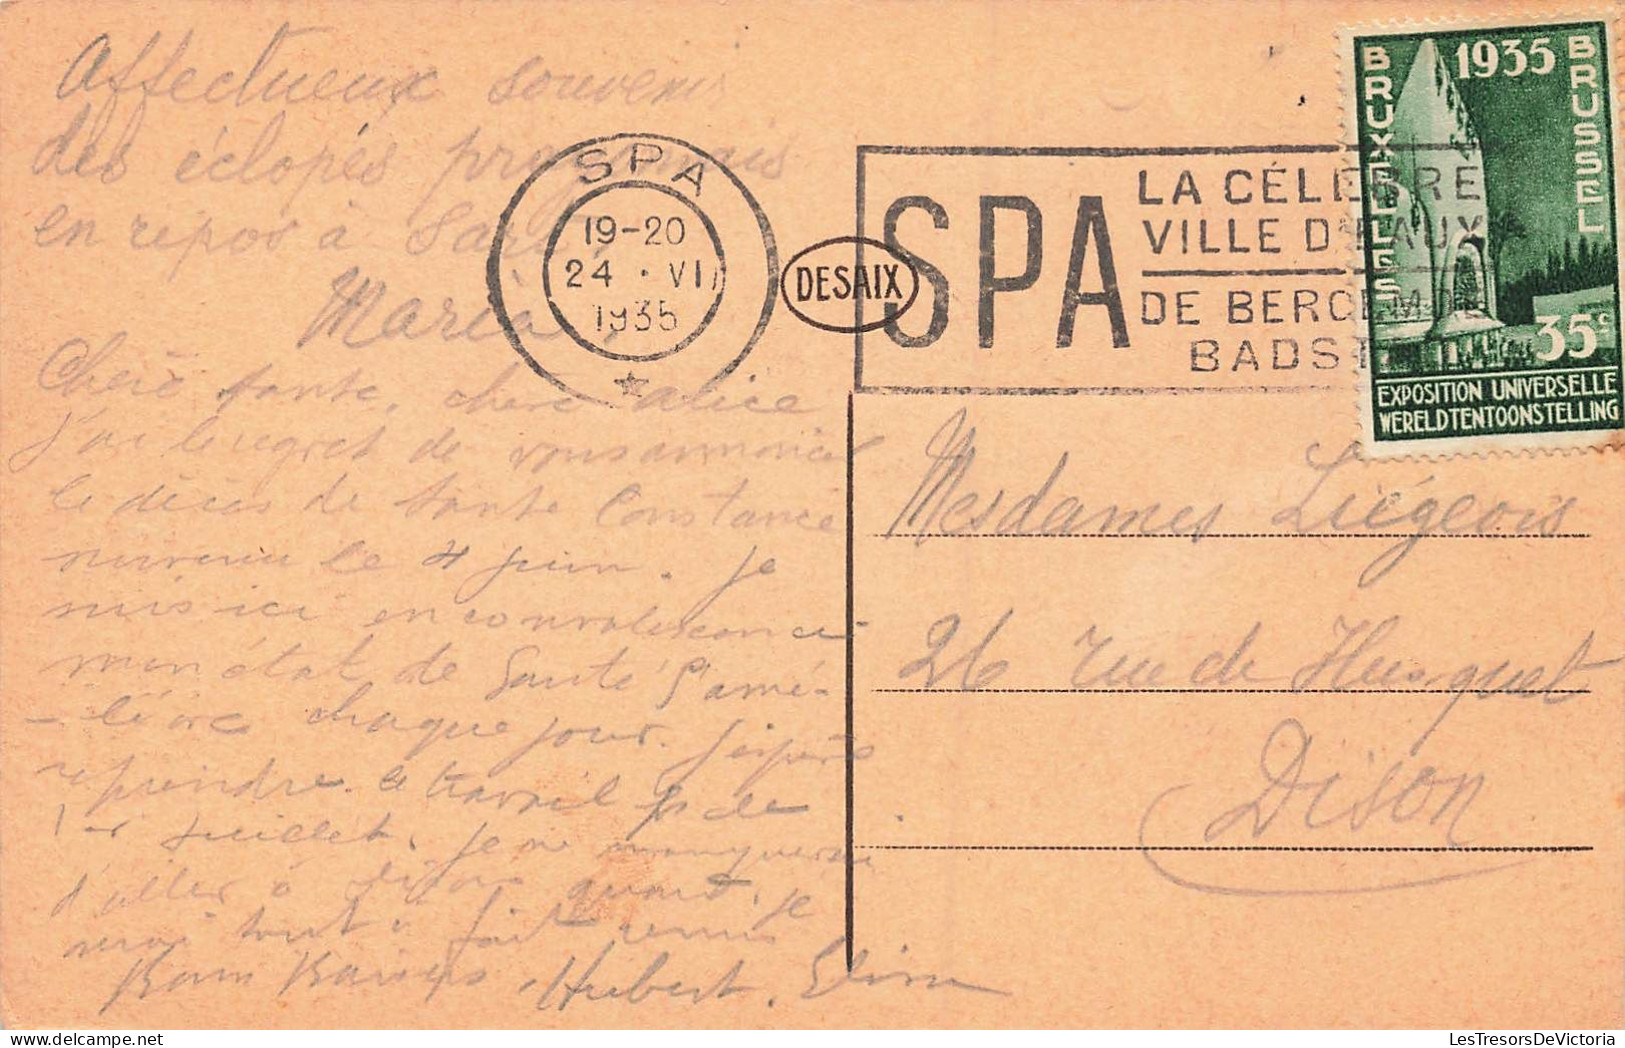 Affectueux souvenir
des éclopés
en repos à Sart
Maria
Chère tante, chère Alice
J'ai le regret de vous annoncer
le décès de tante Constance
survenu le 4 juin. Je
suis ici en convalescence
mon état de santé s'amé-
-liore chaque jour. J'espère
reprendre le travail
1er juillet. Je ne manquerai
d'aller à Dison quand je
serai tout à fait remis
Bons Baisers, Hubert.
SPA
19-20
24 · VI
1935
DESAIX
SPA
LA CÉLÈBRE
VILLE D'EAUX
DE BEROEMDE
BADST
1935
BRUXELLES
BRUSSEL
35c
EXPOSITION UNIVERSELLE
WERELDTENTOONSTELLING
Mesdames Liégeois
26 rue de Husquet
Dison
LesTresorsDeVictoria